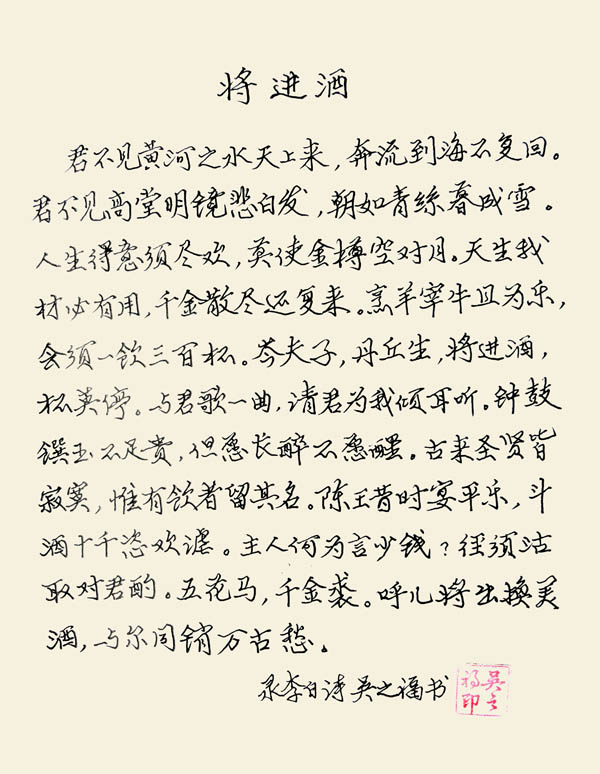 将进酒
君不见黄河之水天上来，奔流到海不复回。
君不见高堂明镜悲白发，朝如青丝暮成雪。
人生得意须尽欢，莫使金樽空对月。天生我
材必有用，千金散尽还复来。烹羊宰牛且为乐，
会须一饮三百杯。岑夫子，丹丘生，将进酒，
杯莫停。与君歌一曲，请君为我倾耳听。钟鼓
馔玉不足贵，但愿长醉不愿醒。古来圣贤皆
寂寞，惟有饮者留其名。陈王昔时宴平乐，斗
酒十千恣欢谑。主人何为言少钱？径须沽
取对君酌。五花马，千金裘。呼儿将出换美
酒，与尔同销万古愁。
录李白诗 吴之福书
吴之福印